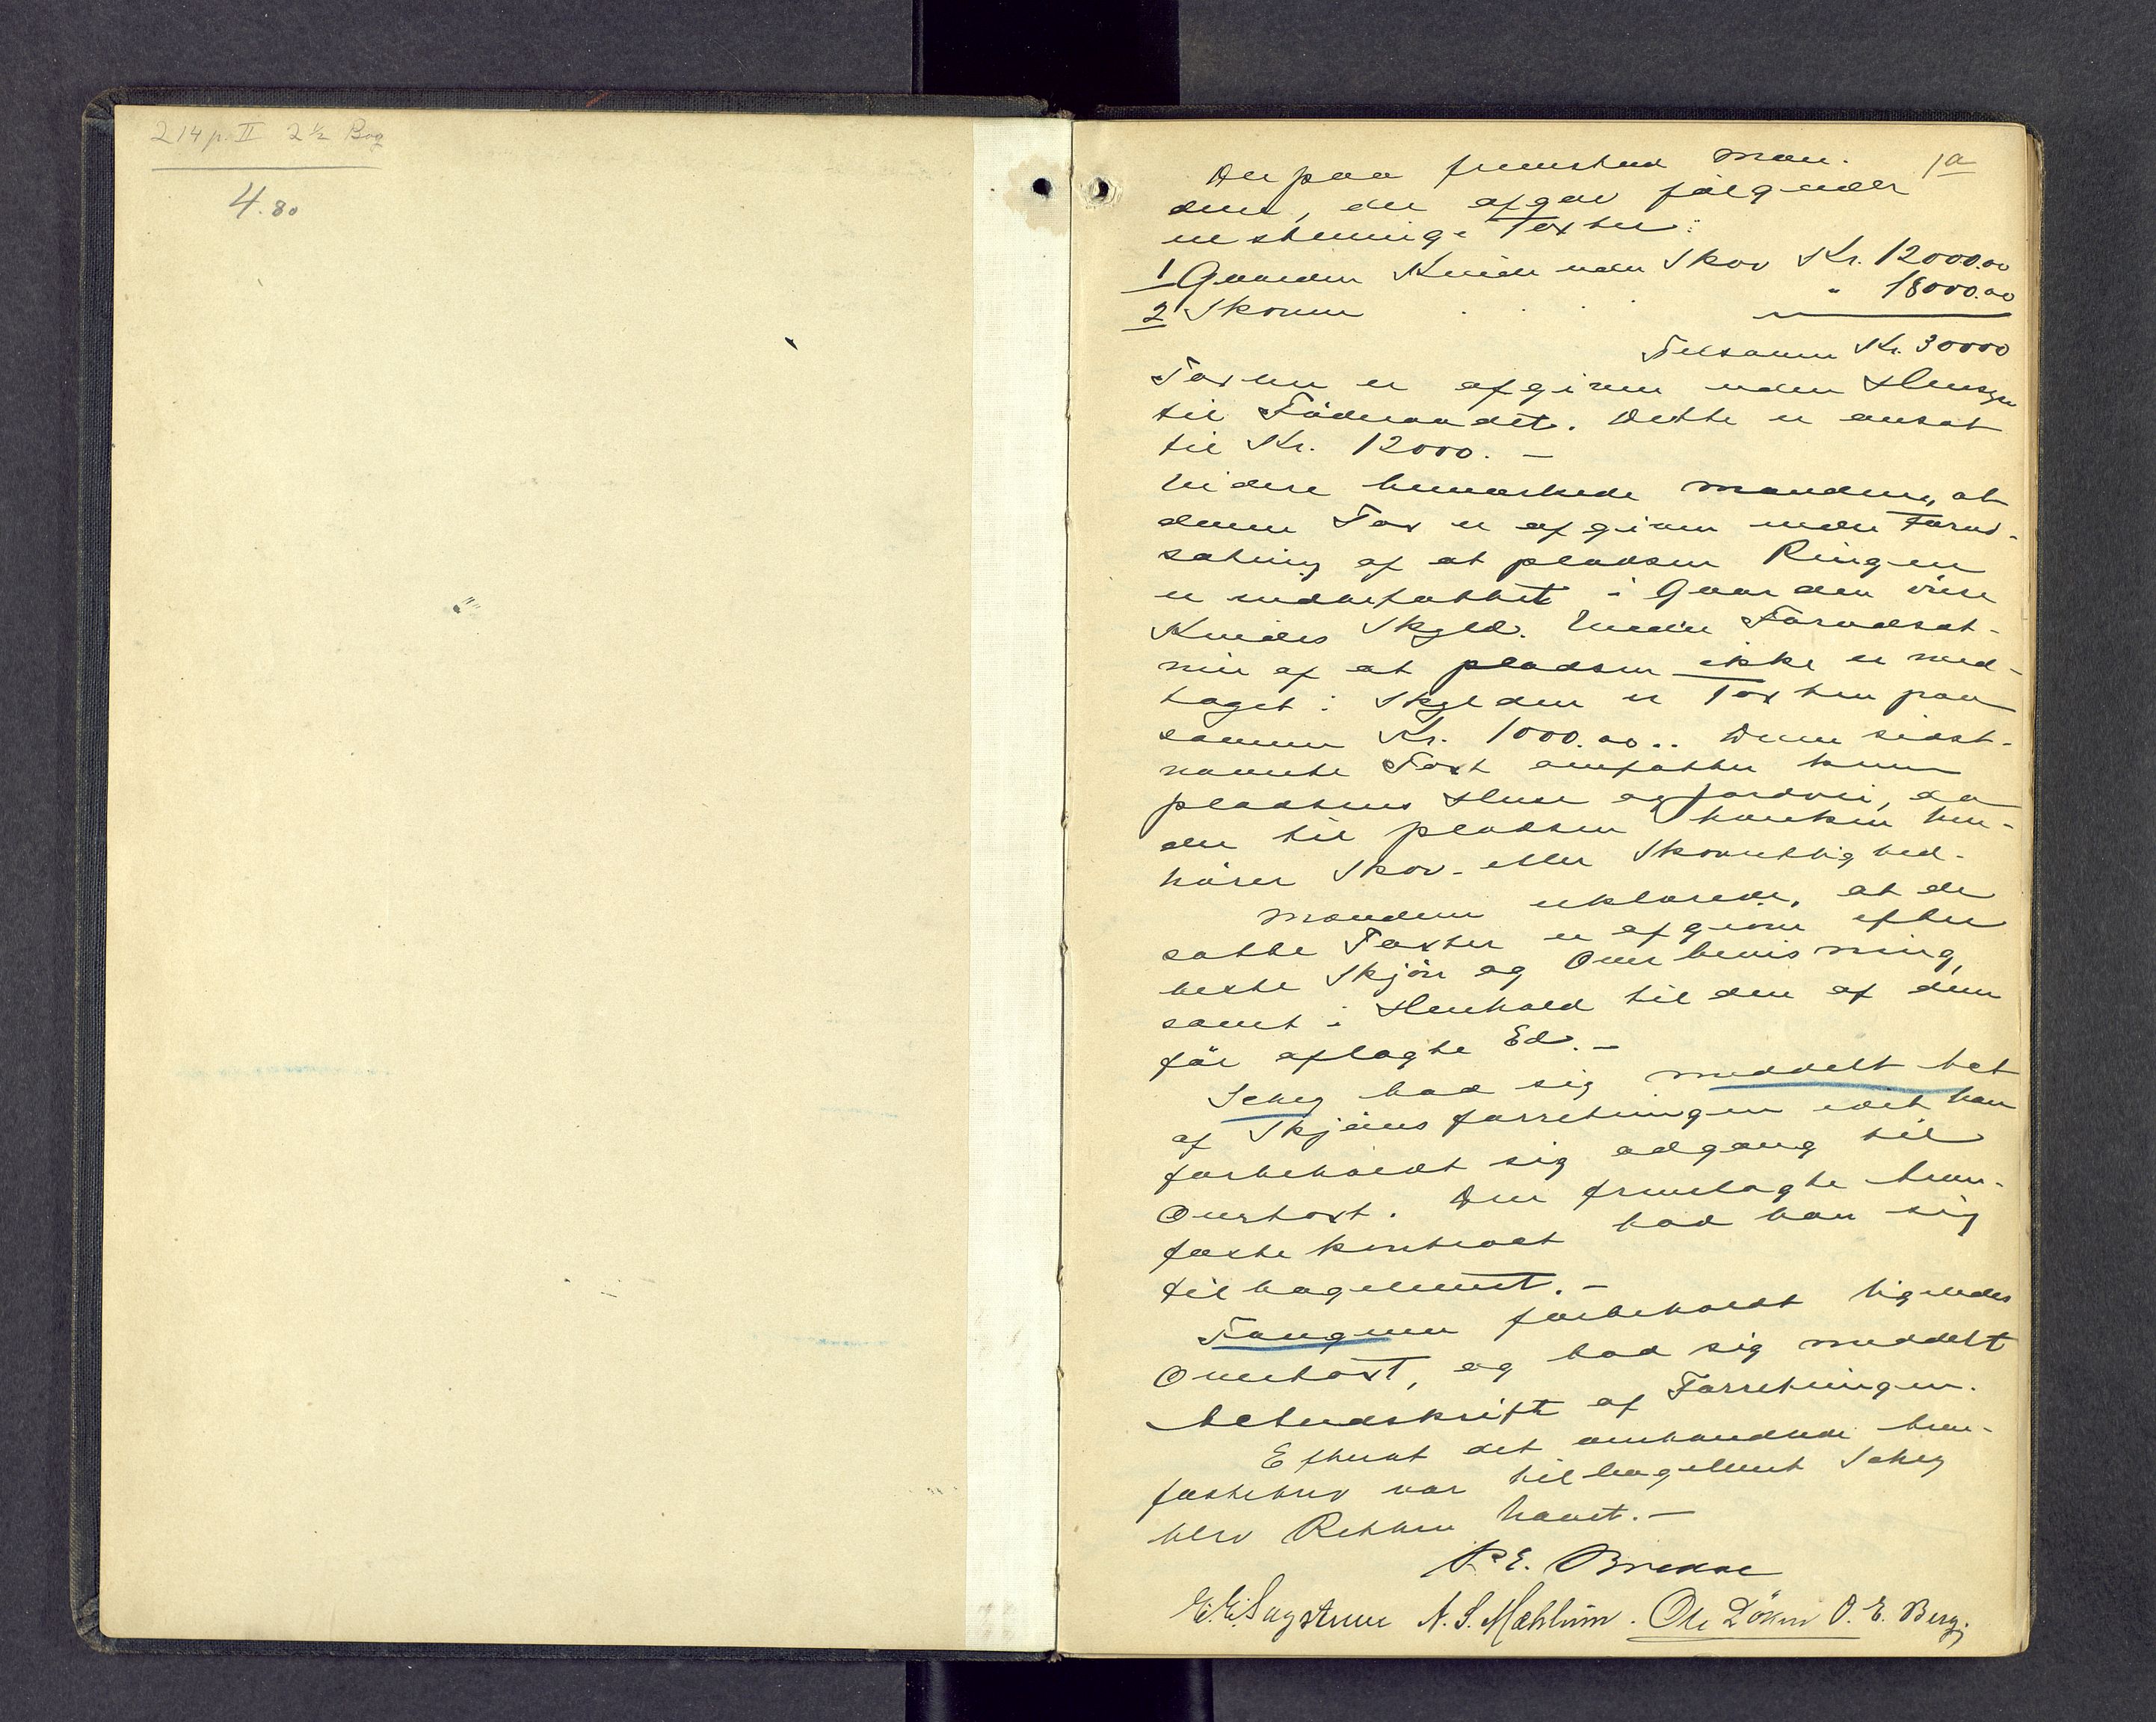 214 p. II 2 1/2 Bog
4.80
1a
Derpaa fremstod Mæn-
dene, der afgav følgende
enstemmige Taxter:
1 Gaarden Kveide uden Skov Kr. 12000.00
2 Skoven . . . " 18000.00
Tilsammen Kr. 30000
Taxten er afgiven uden Hensyn
til Föderaadet. Dette er ansat
til Kr. 12000. —
Videre bemærkede Mændene, at
denne Tax er afgiven under Forud-
sætning af at pladsen Ringen
er indbefattet i Gaarden övre
Kveides Skyld. Under Forudsæt-
nin af at pladsen ikke er med-
taget i Skylden er Taxten paa
samme Kr. 1000.00.. Denne sidst-
nævnte Taxt omfatter kun
pladsens Huse og Jordvei, da
der til pladsen hverken hen-
hörer Skov- eller Skovrettighed.
Mændene erklærede, at de
satte Taxter er afgivne efter
bedste Skjön og Overbevisning,
samt i Henhold til den af dem
för aflagte Ed. —
Schey bad sig meddelt Act
af Skjönsforretningen idet han
forbeholdt sig adgang til
Overtaxt. Den fremlagte
fæstekontrakt bad han sig
tilbageleveret. —
Tangen forbeholdt ligeledes
Overtaxt, og bad sig meddelt
Actudskrift af Forretningen.
Efterat det omhandlede
fæstebrev var tilbageleveret Schey
blev Retten hævet. —
P. E. Bredde
N. S. Mæhlum. Ole Lökken O. E. Berg.